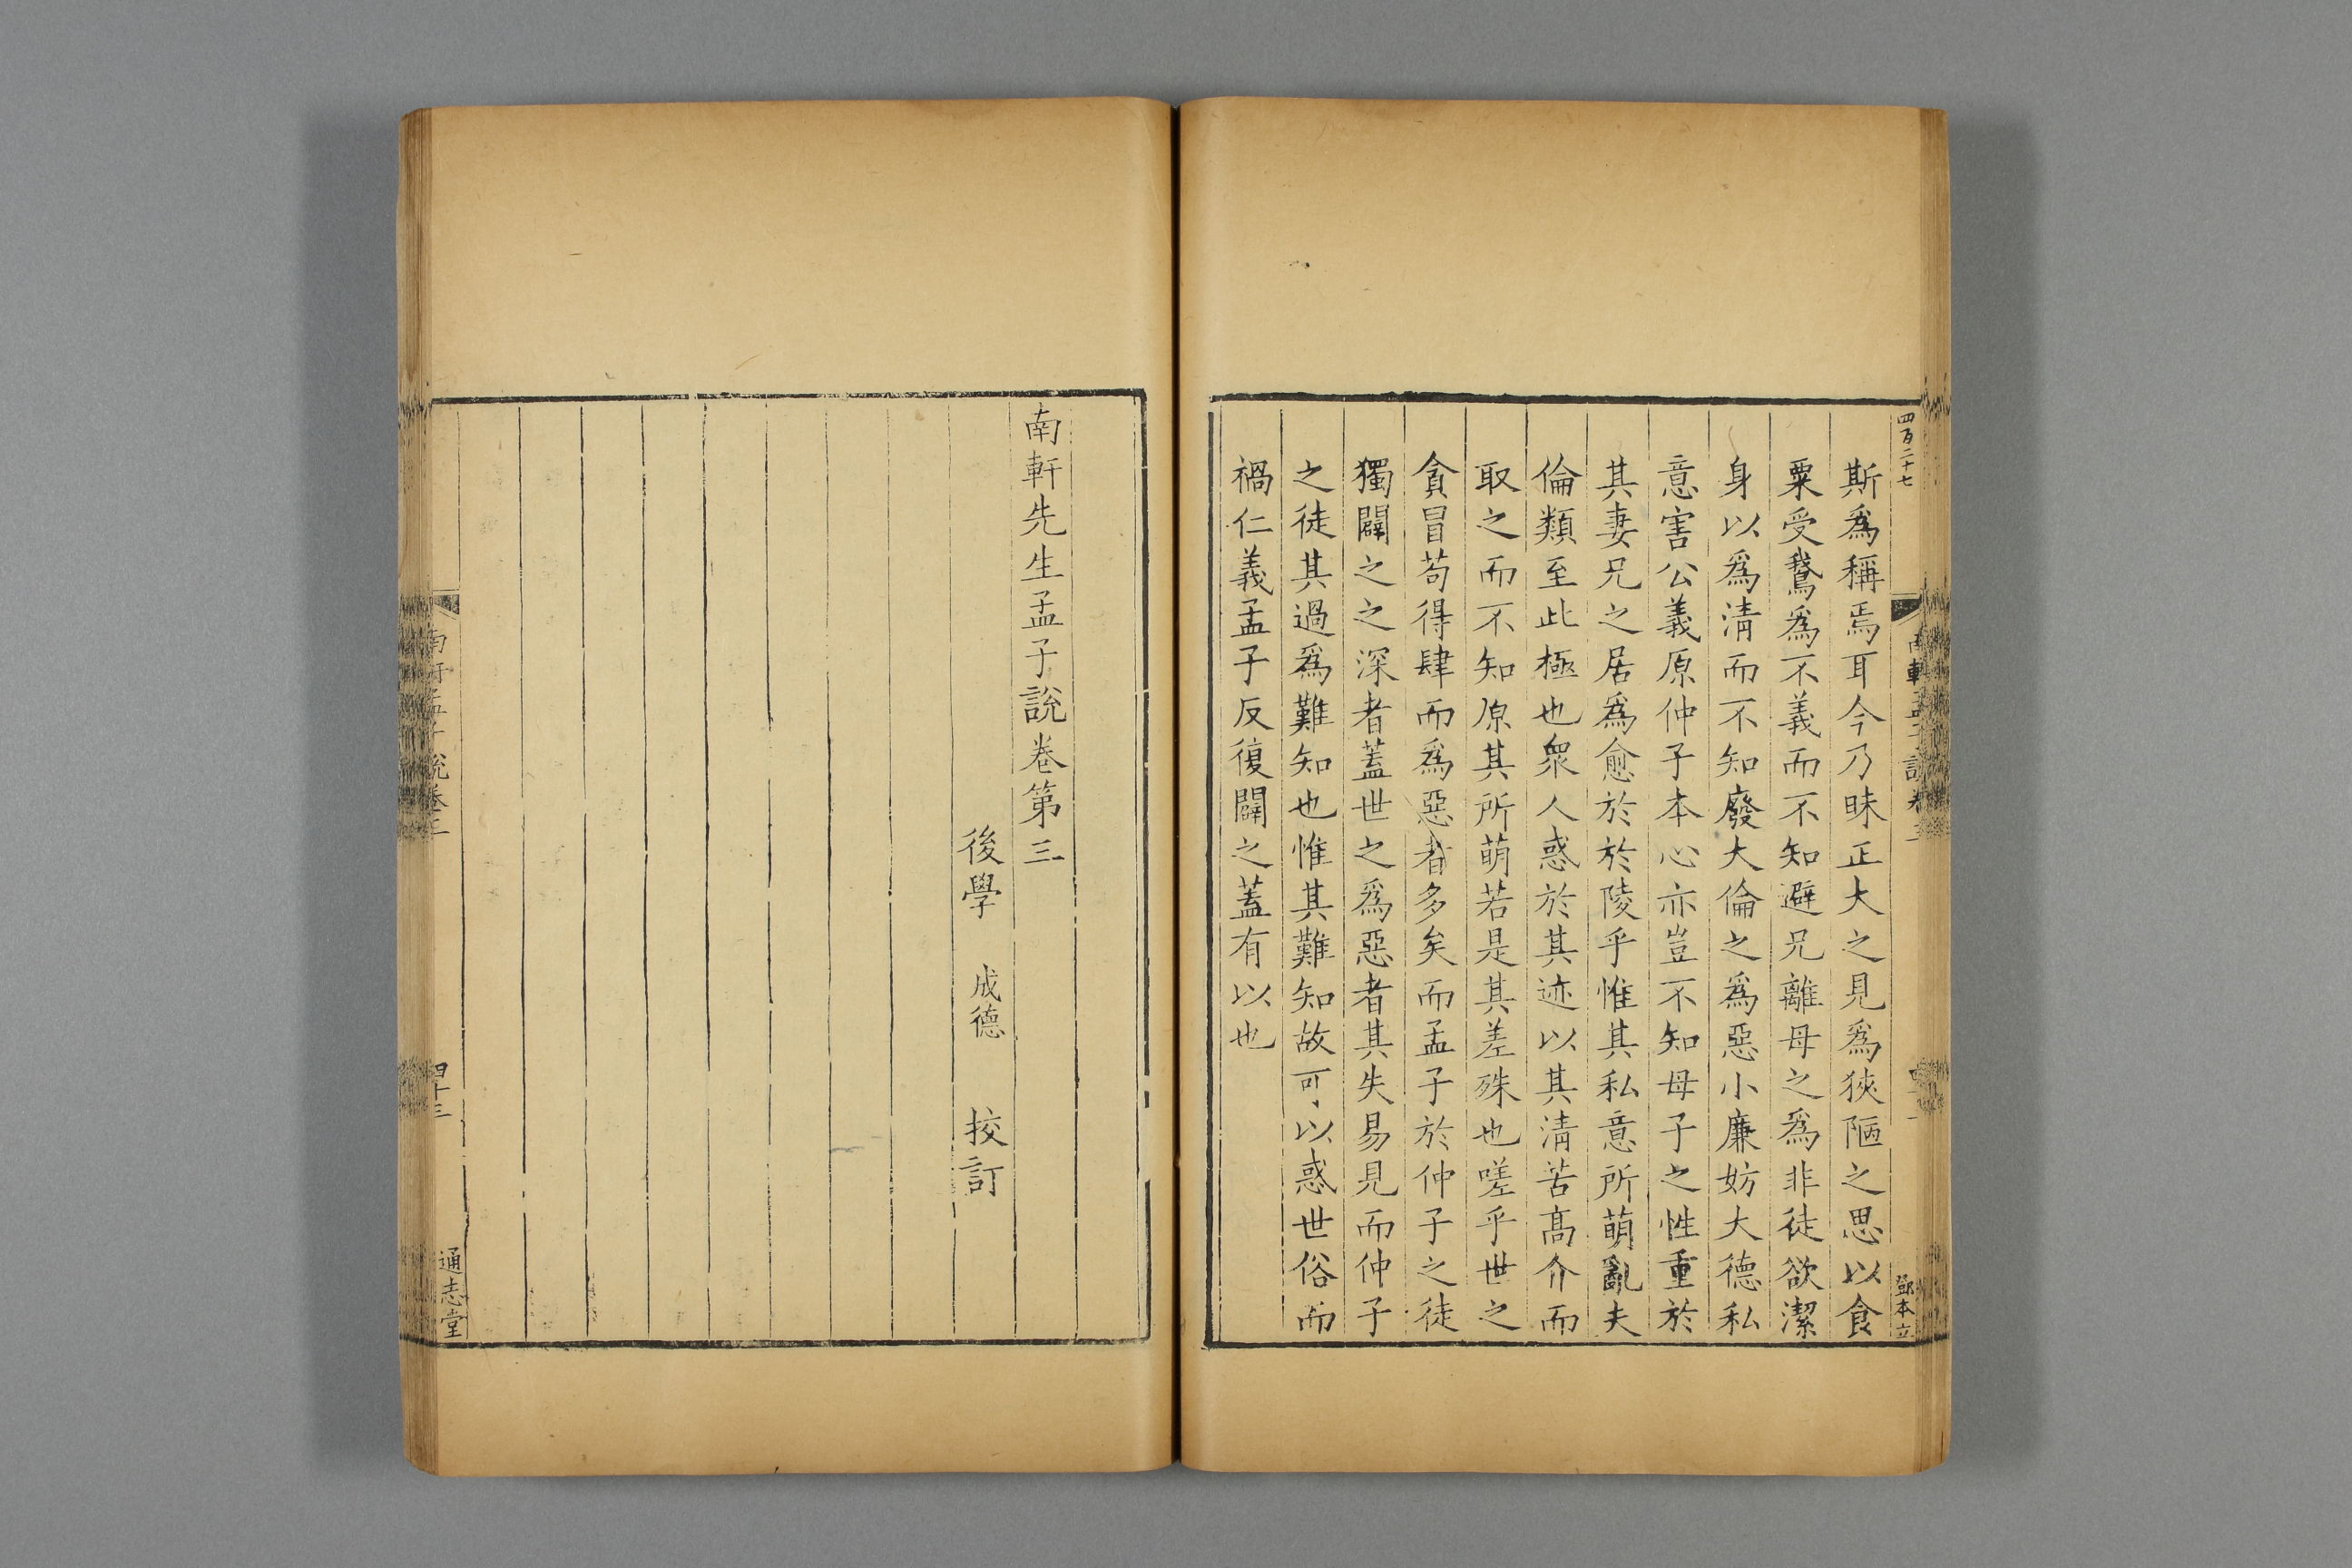 四百二十七
斯爲稱焉耳今乃昧正大之見爲狹陋之思以食
粟受鵞爲不義而不知避兄離母之爲非徒欲潔
身以爲清而不知廢大倫之爲惡小廉妨大德私
意害公義原仲子本心亦豈不知母子之性重於
其妻兄之居爲愈於於陵乎惟其私意所萌亂夫
倫類至此極也衆人惑於其迹以其清苦高介而
取之而不知原其所萌若是其差殊也嗟乎世之
貪冒苟得肆而爲惡者多矣而孟子於仲子之徒
獨闢之之深者蓋世之爲惡者其失易見而仲子
之徒其過爲難知也惟其難知故可以惑世俗而
禍仁義孟子反復闢之蓋有以也
南軒先生孟子說卷第三
後學 成德 校訂
南軒孟子說卷三
四十三
通志堂